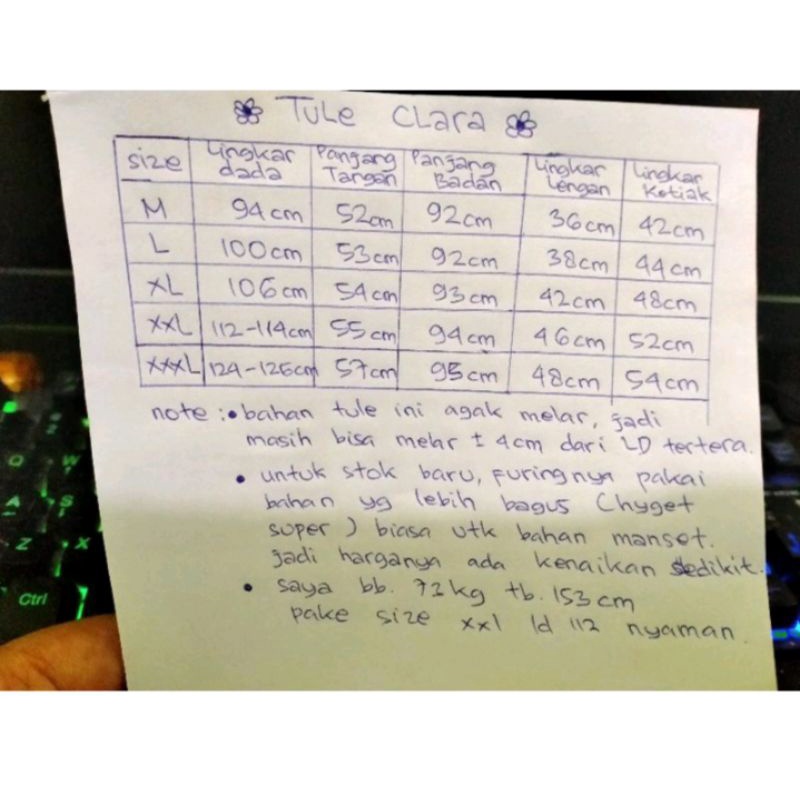 TULe CLara
size Lingkar dada Panjang Tangan Panjang Badan Lingkar Lengan Lingkar Ketiak
M 94cm 52cm 92cm 36cm 42cm
L 100cm 53cm 92cm 38cm 44cm
XL 106cm 54cm 93cm 42cm 48cm
XXL 112-114cm 55cm 94cm 46cm 52cm
XXXL 124-126cm 57cm 95cm 48cm 54cm
note : • bahan tule ini agak melar, jadi
masih bisa melar ± 4cm dari LD tertera.
• untuk stok baru, furingnya pakai
bahan yg lebih bagus (hyget
super) biasa utk bahan manset.
jadi harganya ada kenaikan sedikit.
• saya bb. 72kg tb. 153cm
pake size xxl ld 112 nyaman.
Q W
A S
Z X
Ctrl